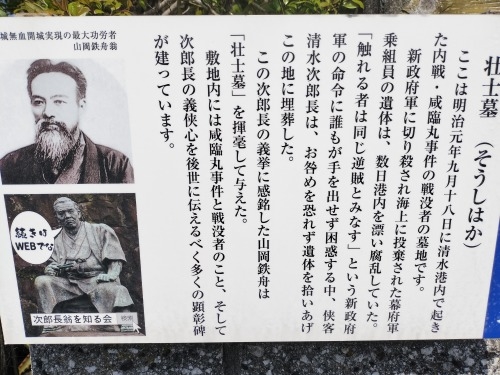 壮士墓　(そうしはか)
ここは明治元年九月十八日に清水港内で起き
た内戦・咸臨丸事件の戦没者の墓地です。
新政府軍に切り殺され海上に投棄された幕府軍
乗組員の遺体は、数日港内を漂い腐乱していた。
「触れる者は同じ逆賊とみなす」という新政府
軍の命令に誰もが手を出せず困惑する中、侠客
清水次郎長は、お咎めを恐れず遺体を拾いあげ
この地に埋葬した。
この次郎長の義挙に感銘した山岡鉄舟は
「壮士墓」を揮毫して与えた。
敷地内には咸臨丸事件と戦没者のこと、そして
次郎長の義侠心を後世に伝えるべく多くの顕彰碑
が建っています。
城無血開城実現の最大功労者
山岡鉄舟翁
続きは
WEBでな
次郎長翁を知る会
検索